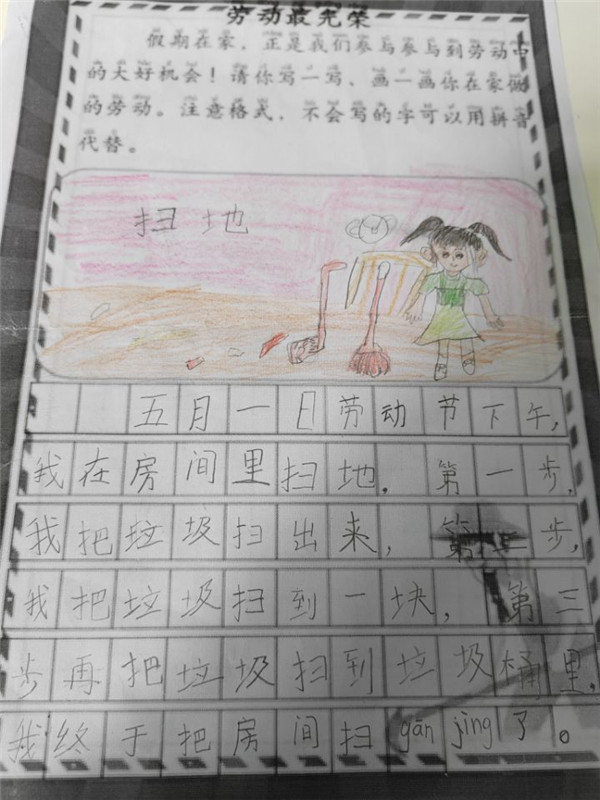 劳动最光荣
假期在家，正是我们参与参与到劳动中
的大好机会！请你写一写、画一画你在家做
的劳动。注意格式，不会写的字可以用拼音
代替。
扫地
五月一日劳动节下午，
我在房间里扫地。第一步，
我把垃圾扫出来，第二步，
我把垃圾扫到一块，第三
步再把垃圾扫到垃圾桶里，
我终于把房间扫gān jìng了。